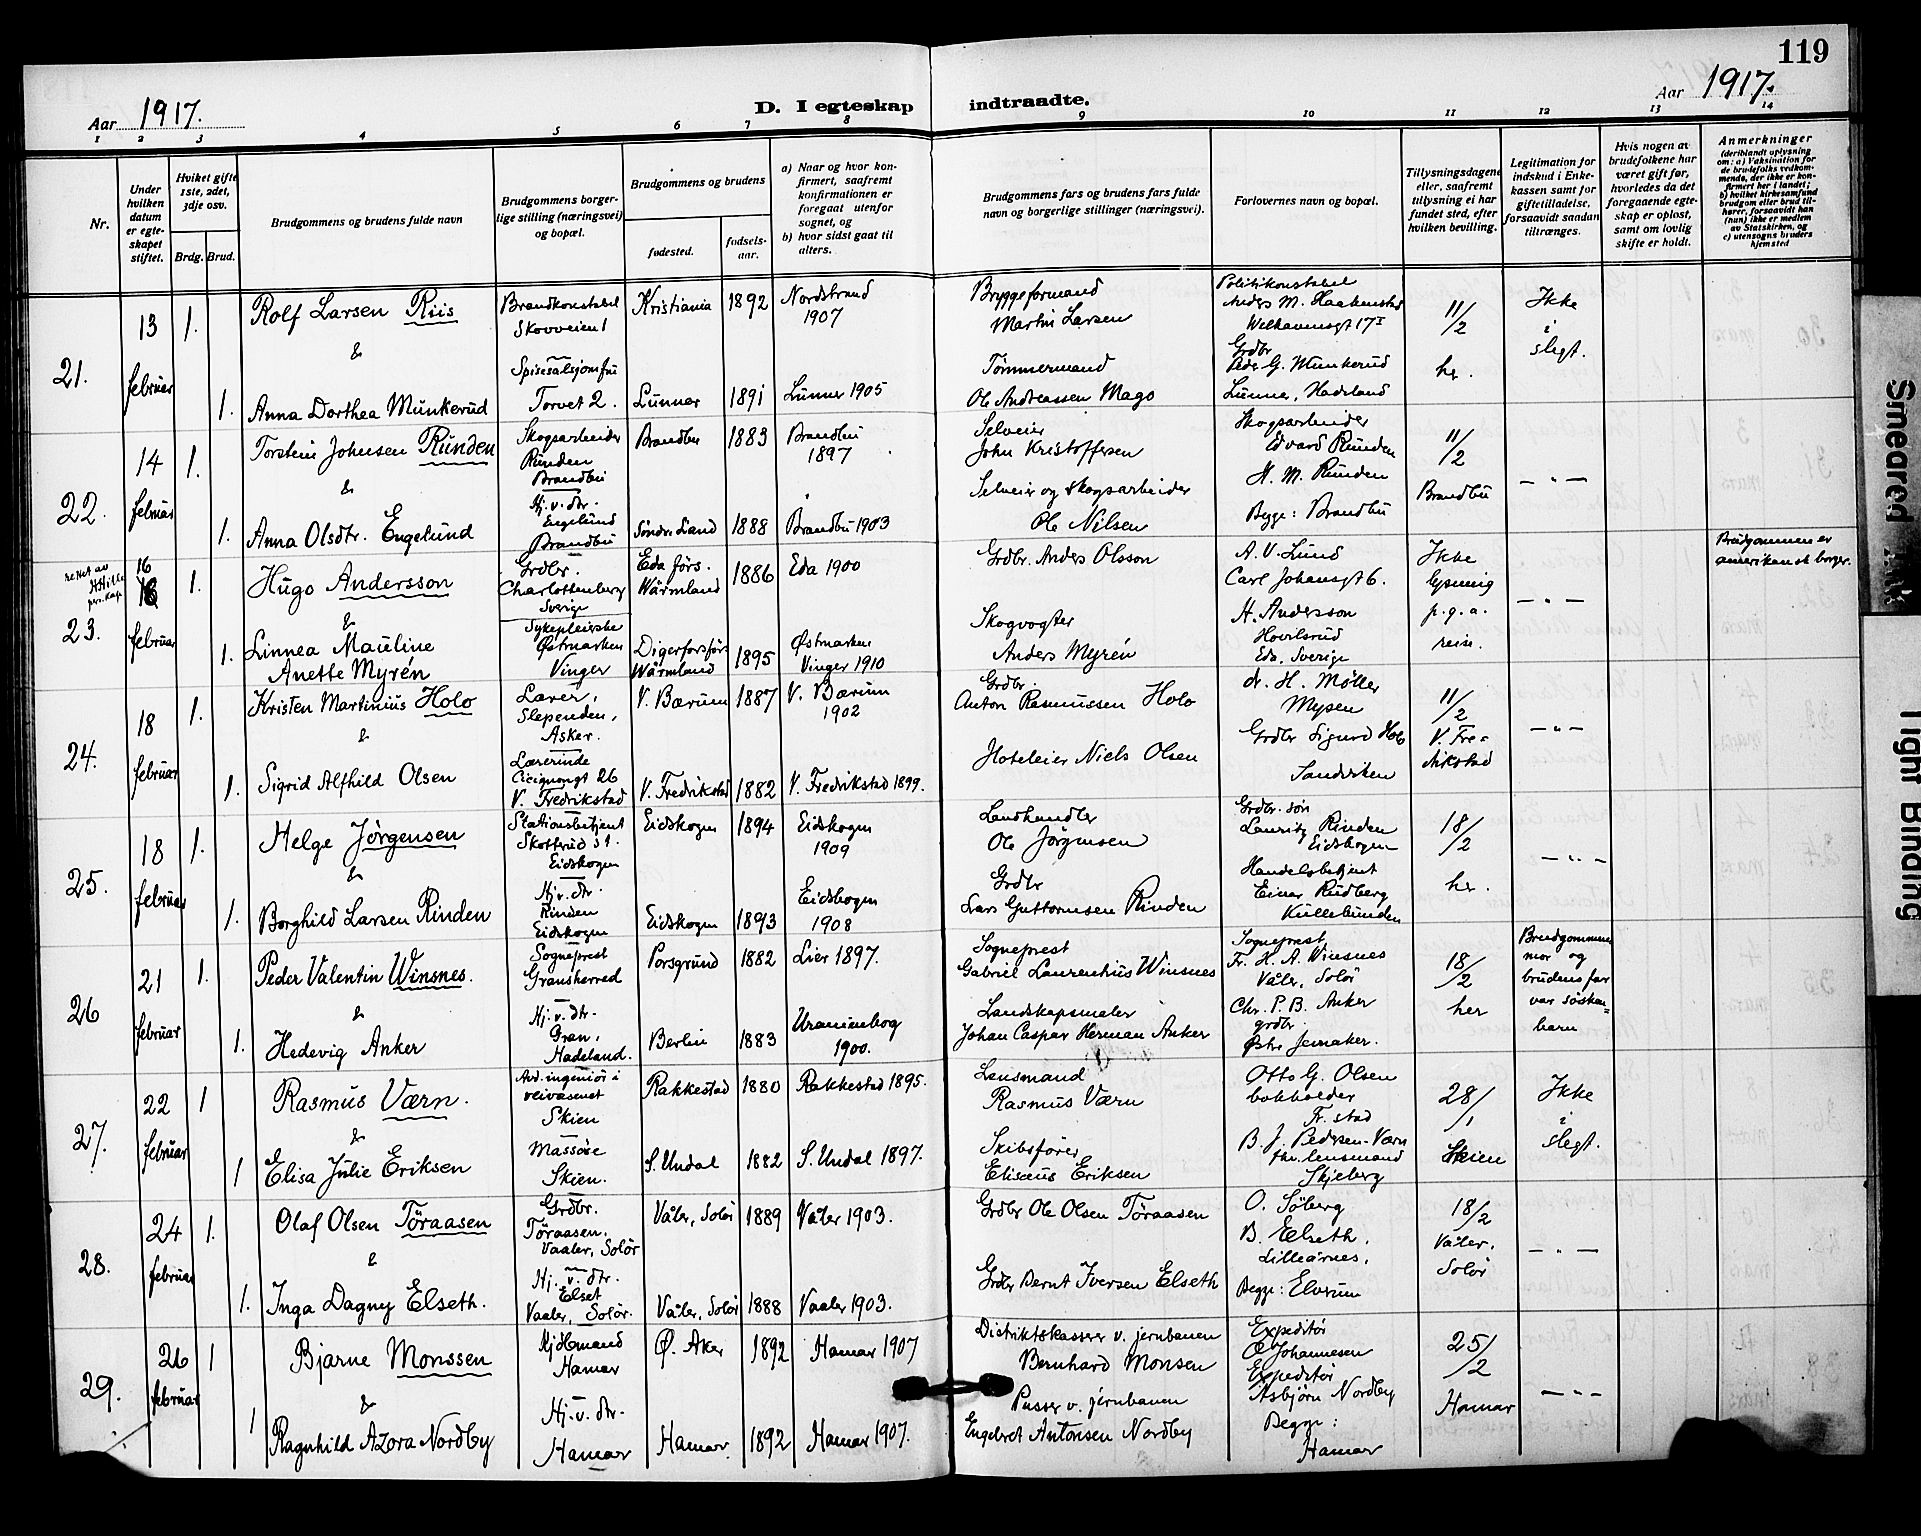 119
Aar 1917.
D. I egteskap indtraadte.
Aar 1917.
1 2 3 4 5 6 7 8 9 10 11 12 13 14
Nr.
Under hvilken datum er egteskapet stiftet.
Hviket gifte 1ste, 2det, 3dje osv.
Brdg. Brud.
Brudgommens og brudens fulde navn
Brudgommens borgerlige stilling (næringsvei) og bopæl.
Brudgommens og brudens
fødested.
fødselsaar.
a) Naar og hvor konfirmert, saafremt konfirmationen er foregaat utenfor sognet, og
b) hvor sidst gaat til alters.
Brudgommens fars og brudens fars fulde navn og borgerlige stillinger (næringsvei).
Forlovernes navn og bopæl.
Tillysningsdagene eller, saafremt tillysning ei har fundet sted, efter hvilken bevilling.
Legitimation for indskud i Enkekassen samt for giftetilladelse, forsaavidt saadan tiltrænges.
Hvis nogen av brudefolkene har været gift før, hvorledes da det foregaaende egteskap er opløst, samt om lovlig skifte er holdt.
Anmerkninger
(deriblandt oplysning om: a) Vaksination for de brudefolks vedkommende, der ikke er konfirmert her i landet; b) hvilket kirkesamfund brudgom eller brud tilhører, forsaavidt han (hun) ikke er medlem av Statskirken, og c) utensogns bruders hjemsted
21. 13 februar 1. Rolf Larsen Riis
Brandkonstabel Skovveien 1
Kristiania 1892 Nordstrand 1907
Bryggeformand Martin Larsen
Politikonstabel Anders M. Haakenstad Welhavensgt 17 I
11/2 her.
Ikke i slegt.
&
1. Anna Dorthea Munkerud
Torvet 2. Lunner 1891 Lunner 1905
Tømmermand Ole Andreassen Mago
Grdbr Peder G. Munkerud Lunner, Hadeland
22. 14 februar 1. Torstein Johnsen Runden
Skogsarbeider Runden Brandbu
Brandbu 1883 Brandbu 1897
Selveier John Kristoffersen
Skogsarbeider Edvard Runden
11/2 Brandbu
– " –
&
1. Anna Olsdtr. Engelund
Hj. v. dtr. Engelund Brandbu
Søndre Land 1888 Brandbu 1903
Selveier og skogsarbeider Ole Nilsen
H. M. Runden
Begge: Brandbu
23. 16 februar 1. Hugo Andersson
Grdbr. Charlottenberg Sverige
Eda förs. Wärmland 1886 Eda 1900
Grdbr. Anders Olsson
A. V. Lund Carl Johansgt 6.
Ikke lysning p.g.a. reise.
– " –
Brudgommen er amerikansk borger.
&
1. Linnea Mauline Anette Myrén
Sykepleierske Østmarken Vinger
Wärmland 1895 Østmarken Vinger 1910
Skogvogter Anders Myrén
H. Andersson
Eda, Sverige
24. 18 februar 1. Kristen Martinius Holo
Lærer, Slependen, Asker.
V. Bærum 1887 V. Bærum 1902
Grdbr. Anton Rasmussen Holo
dr. H. Møller Mysen
11/2 V. Fredrikstad
– " –
&
1. Sigrid Alfhild Olsen
Lærerinde Cicignongt 26 V. Fredrikstad
V. Fredrikstad 1882 V. Fredrikstad 1899.
Hoteleier Niels Olsen
Grdbr Sigurd Holo Sandviken
25. 18 februar 1. Helge Jørgensen
Stationsbetjent Skotterud st. Eidskogen
Eidskogen 1894 Eidskogen 1909
Landhandler Ole Jørgensen
Grdbr. søn Lauritz Rinden Eidskogen
18/2 her.
– " –
&
1. Borghild Larsen Rinden
Hj. v. dtr. Rinden Eidskogen
Eidskogen 1893 Eidskogen 1908
Grdbr Lars Guttormsen Rinden
Handelsbetjent Einar Rudberg Kullebunden
26 21 februar 1. Peder Valentin Winsnes.
Sogneprest Gransherred
Porsgrund 1882 Lier 1897.
Sogneprest Gabriel Laurentius Winsnes
Sogneprest Fr. H. A. Winsnes Våler, Solør
18/2 her
Brudgommens mor og brudens far var søskenbarn
&
1. Hedevig Anker
Hj. v. dtr. Gran, Hadeland.
Berlin 1883 Uranienborg 1900.
Landskapsmaler Johan Caspar Herman Anker
Chr. P. B. Anker grdbr.
27. 22 februar 1 Rasmus Værn.
Avd. ingeniør i veivæsenet Skien
Rakkestad 1880 Rakkestad 1895.
Lensmand Rasmus Værn
Otto G. Olsen bokholder Fr. stad
28/1 Skien
Ikke i slegt.
&
1 Elisa Julie Eriksen
Massøse Skien.
S. Undal 1882 S. Undal 1897.
Skibsfører Elisæus Eriksen
B. J. Pedersen-Værn fhv. lensmand Skjeberg
28. 24 februar 1. Olaf Olsen Töraasen
Grdbr. Töraasen, Vaaler, Solör
Våler, Solör 1889 Våler 1903.
Grdbr Ole Olsen Töraasen
O. Söberg
18/2 Våler, Solör
– " –
&
1. Inga Dagny Elseth.
Hj. v. dtr. Elset Vaaler, Solör.
Våler, Solör 1888 Vaaler 1903.
Grdbr Bernt Iversen Elseth
B. Elseth, Lilleårnes,
Begge: Elverum
29. 26 februar 1 Bjarne Monssen
Kjøbmand Hamar
Ø. Aker 1892 Hamar 1907
Distriktskasserer v. jernbanen Bernhard Monsen
Expeditör Johannesen
25/2 Hamar
– " –
&
1 Ragnhild Azora Nordby
Hj. v. dtr. Hamar
Hamar. 1892 Hamar 1907.
Pusser v. jernbanen Engebret Antonsen Nordby
Expeditör Asbjörn Nordby
Begge: Hamar
Smeared Ink
Tight Binding